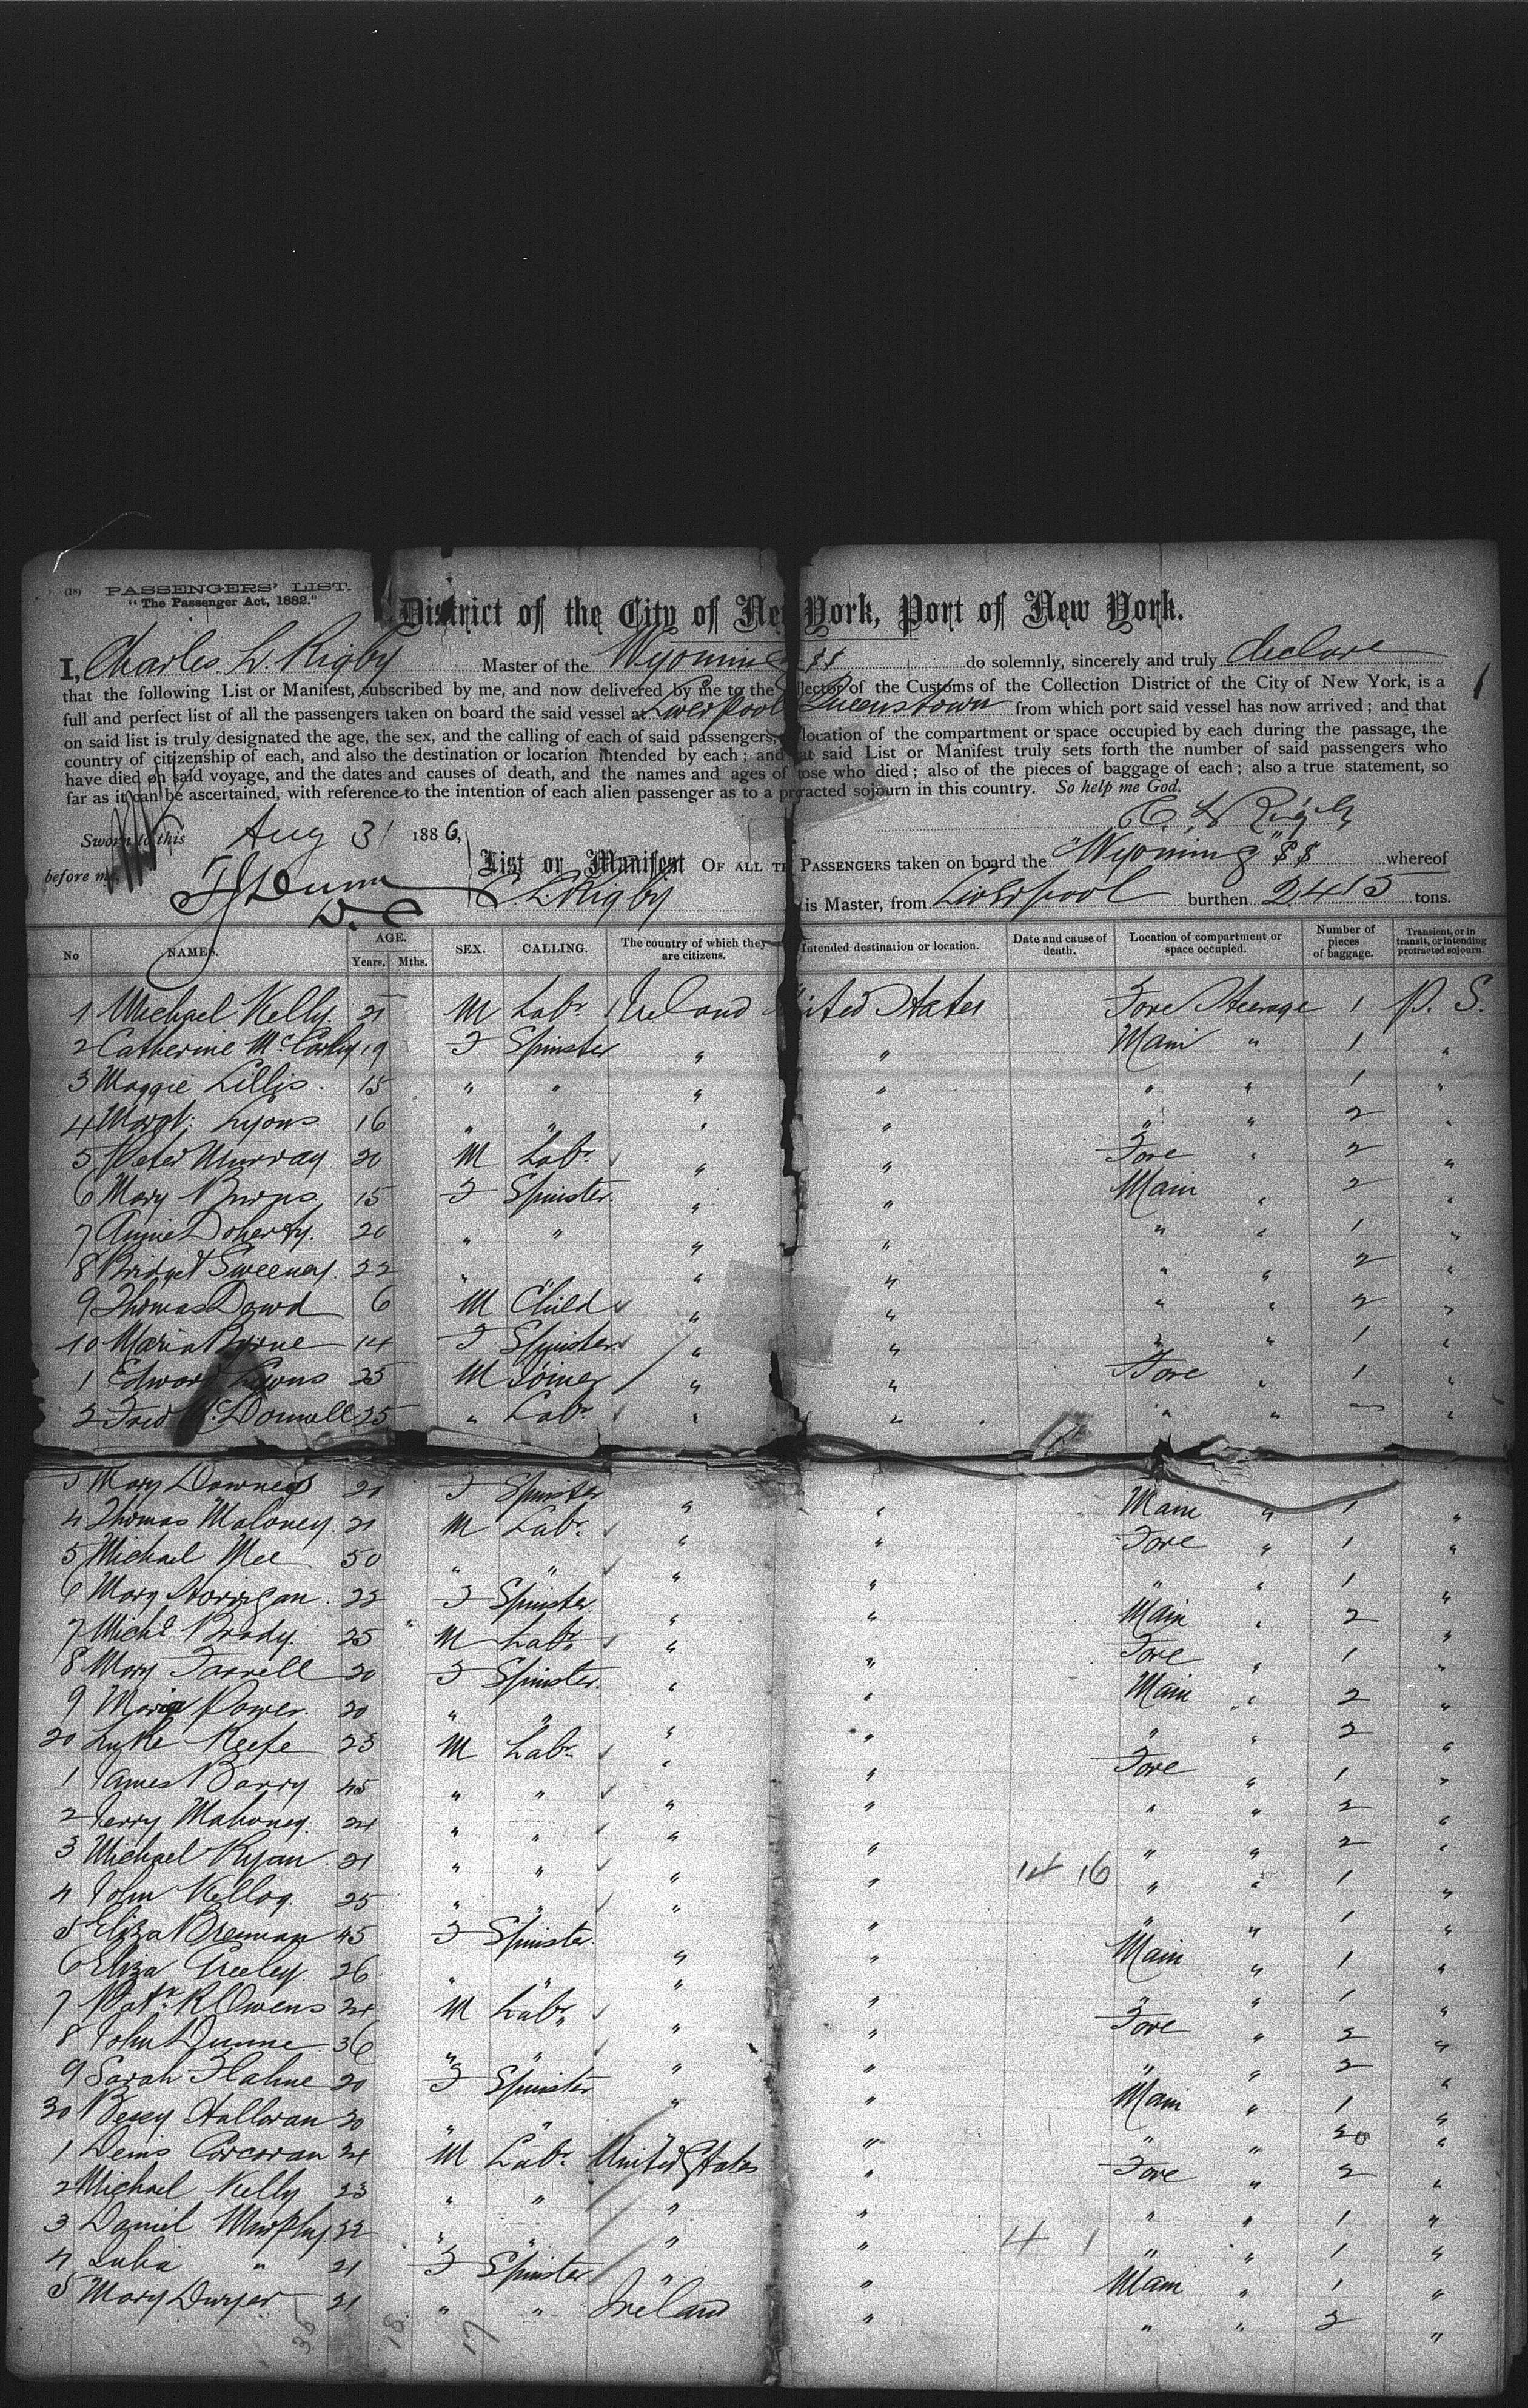 (18) PASSENGERS' LIST.
"The Passenger Act, 1882."
District of the City of New York, Port of New York.
I, Charles L. Rigby Master of the Wyoming SS do solemnly, sincerely and truly declare
that the following List or Manifest, subscribed by me, and now delivered by me to the llector of the Customs of the Collection District of the City of New York, is a
full and perfect list of all the passengers taken on board the said vessel at Liverpool Queenstown from which port said vessel has now arrived; and that
on said list is truly designated the age, the sex, and the calling of each of said passengers, location of the compartment or space occupied by each during the passage, the
country of citizenship of each, and also the destination or location intended by each; and at said List or Manifest truly sets forth the number of said passengers who
have died on said voyage, and the dates and causes of death, and the names and ages of those who died; also of the pieces of baggage of each; also a true statement, so
far as it can be ascertained, with reference to the intention of each alien passenger as to a protracted sojourn in this country. So help me God.
C. L. Rigby
Sworn to this Aug 31 1886,
before me
List or Manifest OF ALL THE PASSENGERS taken on board the "Wyoming" SS whereof
C L Rigby is Master, from Liverpool burthen 2415 tons.
No NAMES. AGE. Years. Mths. SEX. CALLING. The country of which they are citizens. Intended destination or location. Date and cause of death. Location of compartment or space occupied. Number of pieces of baggage. Transient, or in transit, or intending protracted sojourn.
1 Michael Kelly 21 M Labr. Ireland United States Fore Steerage 1 P. S.
2 Catherine McCarthy 19 F Spinster " " Main " 1 "
3 Maggie Lillis 15 " " " " " " 1 "
4 Margt. Lyons 16 " " " " " " 2 "
5 Peter Murray 20 M Labr. " " Fore " 2 "
6 Mary Burns 15 F Spinster " " Main " 2 "
7 Annie Doherty 20 " " " " " " 1 "
8 Bridget Sweeney 22 " " " " " " 2 "
9 Thomas Dowd 6 M Child " " " " 2 "
10 Maria Byrne 14 F Spinster " " " " 1 "
1 Edward Lyons 25 M Joiner " " Fore " 1 "
2 Fred McDonnell 25 " Labr. " " " " - "
3 Mary Downes 21 F Spinster " " Main " 1 "
4 Thomas Maloney 21 M Labr. " " Fore " 1 "
5 Michael Mee 50 " " " " " " 1 "
6 Mary Horrigan 22 F Spinster " " Main " 2 "
7 Michl Brady 25 M Labr. " " Fore " 1 "
8 Mary Farrell 20 F Spinster " " Main " 2 "
9 Maria Power 20 " " " " " " 2 "
20 Luke Keefe 23 M Labr. " " Fore " 1 "
1 James Barry 45 " " " " " " 2 "
2 Jerry Mahoney 24 " " " " " " 2 "
3 Michael Ryan 21 " " " " 14 16 " " 1 "
4 John Kellog 25 " " " " " " 1 "
5 Eliza Brennan 45 F Spinster " " Main " 1 "
6 Eliza Greeley 26 " " " " " " 1 "
7 Patk. R Owens 24 M Labr. " " Fore " 2 "
8 John Dunne 36 " " " " " " 2 "
9 Sarah Flahne 20 F Spinster " " Main " 1 "
30 Bessy Halloran 20 " " " " " " 20 "
1 Denis Corcoran 24 M Labr. United States " Fore " 2 "
2 Michael Kelly 23 " " " " " " 1 "
3 Daniel Murphy 22 " " " " 4 1 " " 1 "
4 Julia " 21 F Spinster " " Main " 1 "
5 Mary Dwyer 21 " " Ireland " " " 2 "
18 17